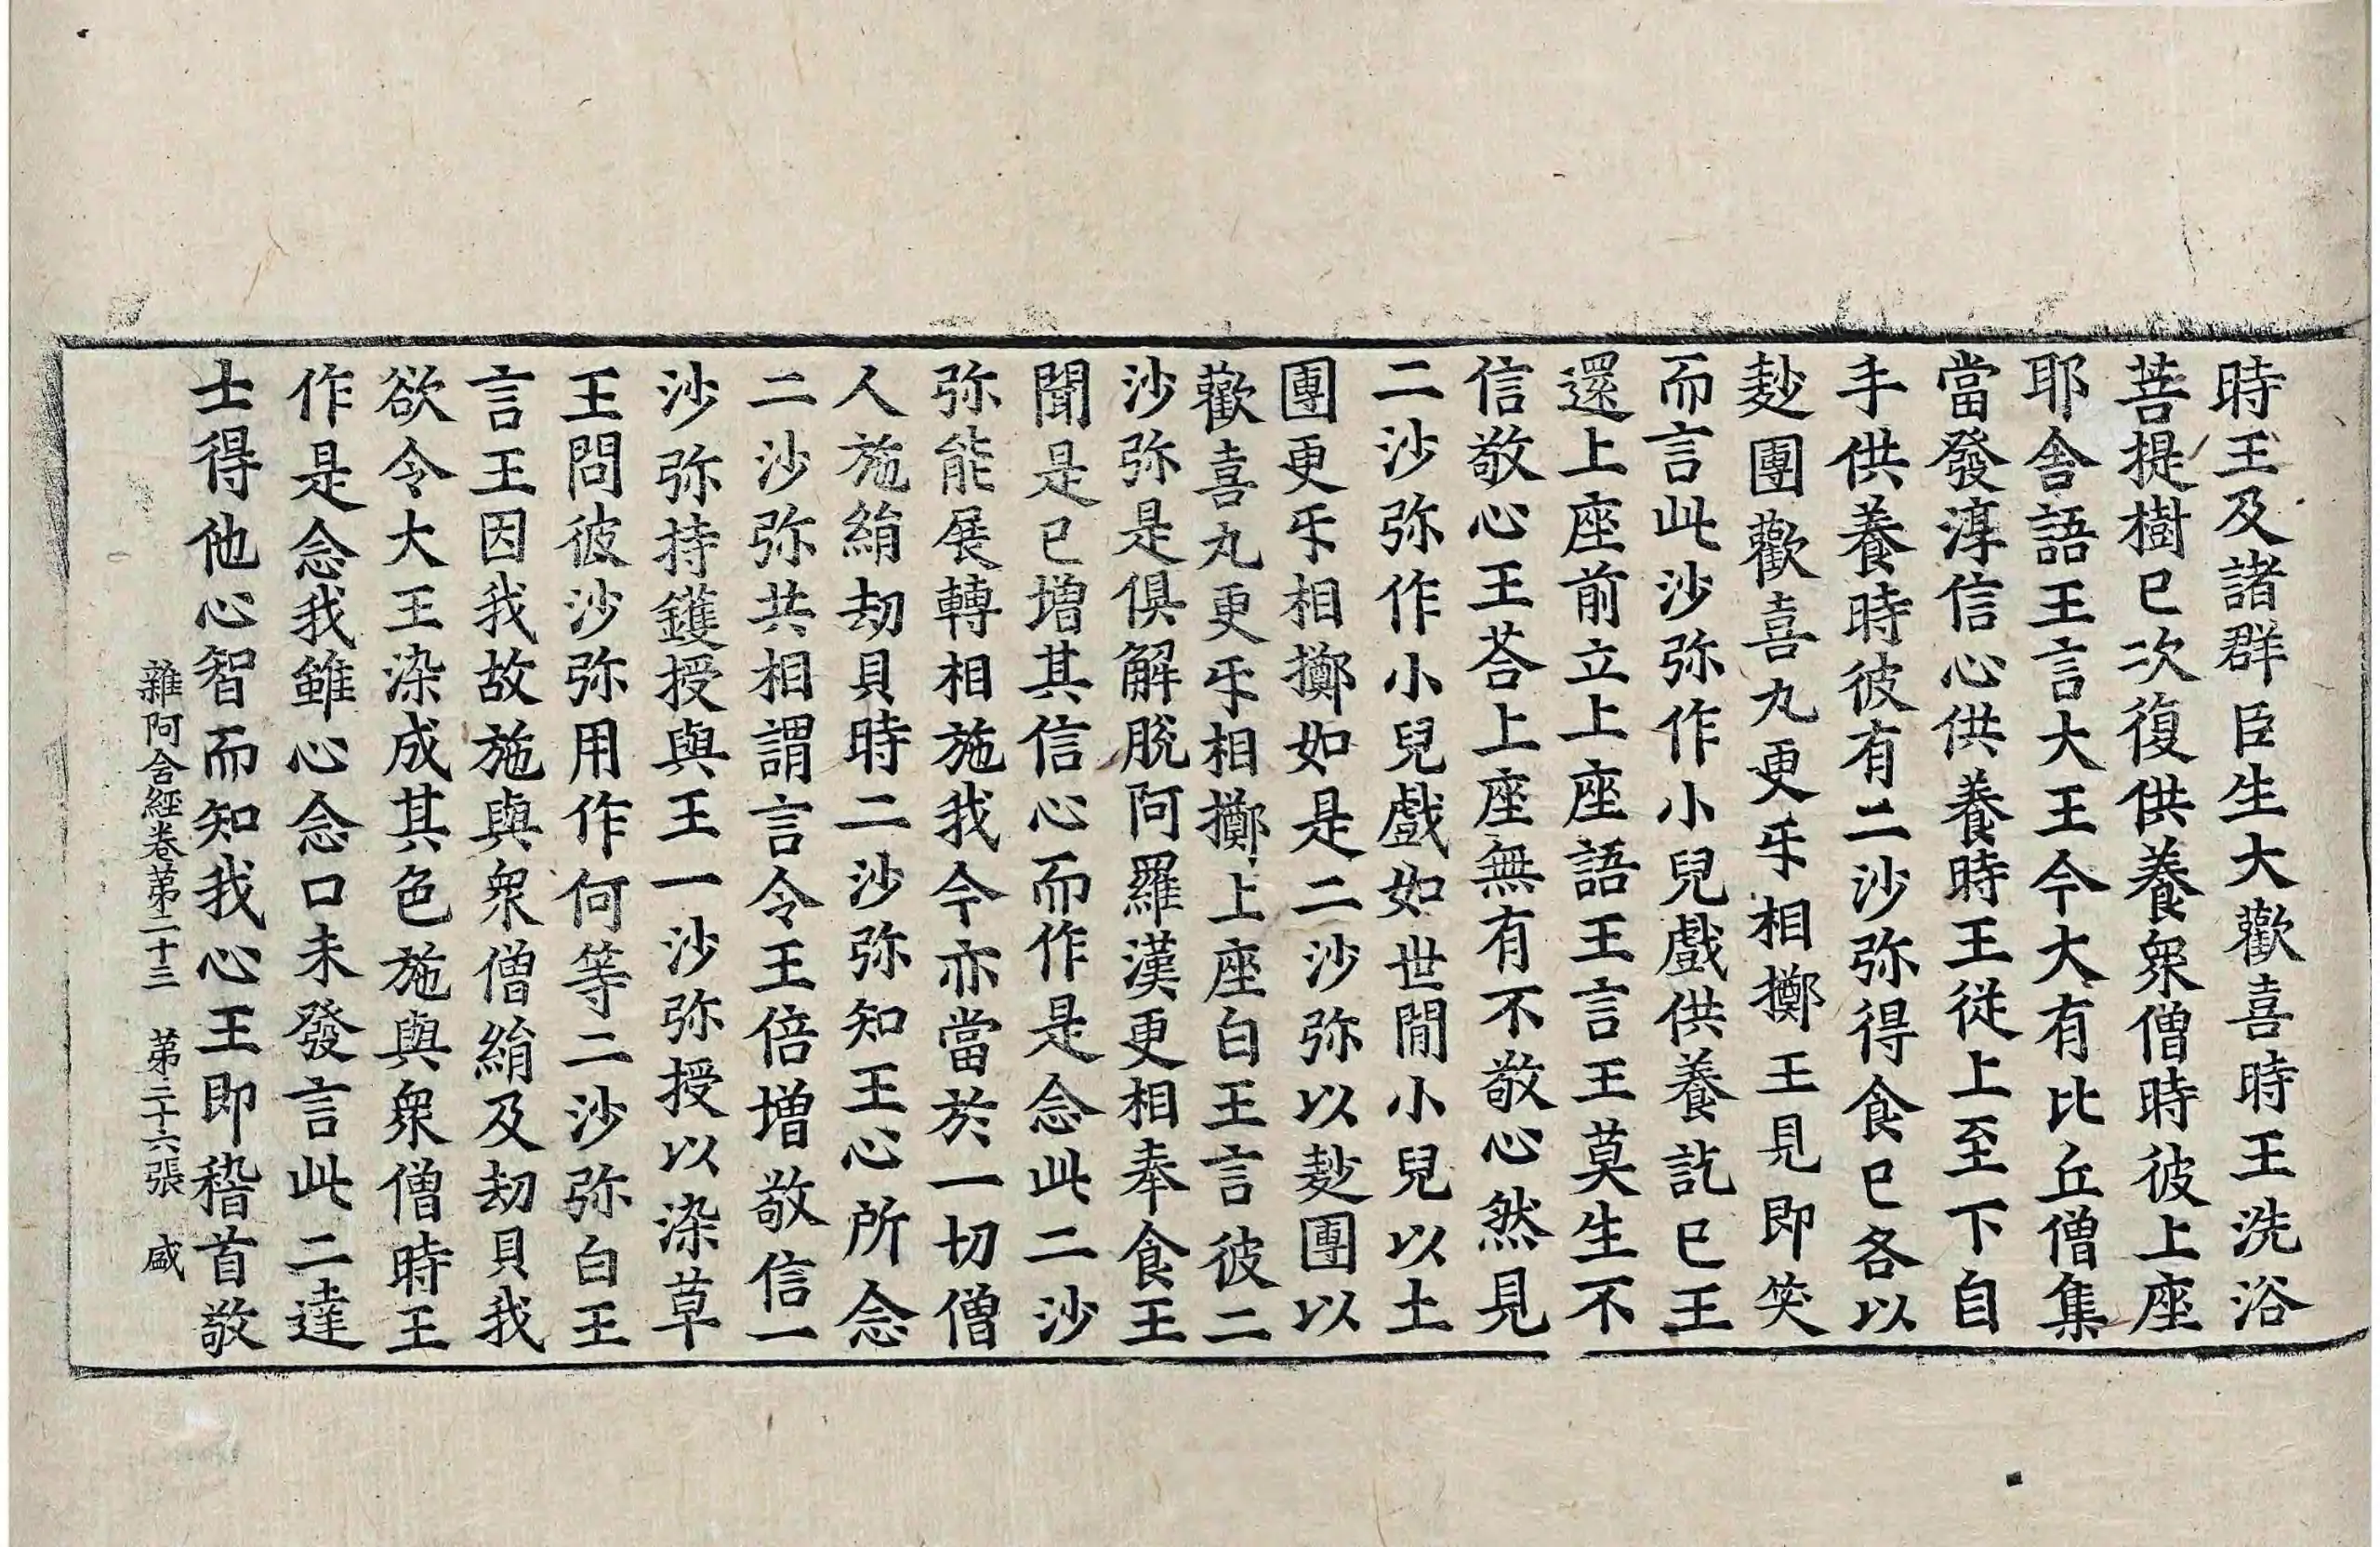 時王及諸群臣生大歡喜時王洗浴
菩提樹已次復供養衆僧時彼上座
耶舍語王言大王今大有比丘僧集
當發淳信心供養時王從上至下自
手供養時彼有二沙弥得食已各以
麨團歡喜丸更㸦相擲王見即笑
而言此沙弥作小兒戲供養訖已王
還上座前立上座語王言王莫生不
信敬心王荅上座無有不敬心然見
二沙弥作小兒戲如世閒小兒以土
團更㸦相擲如是二沙弥以麨團以
歡喜丸更㸦相擲上座白王言彼二
沙弥是俱解脫阿羅漢更相奉食王
聞是已增其信心而作是念此二沙
弥能展轉相施我今亦當於一切僧
人施絹劫貝時二沙弥知王心所念
二沙弥共相謂言令王倍增敬信一
沙弥持鑊授與王一沙弥授以染草
王問彼沙弥用作何等二沙弥白王
言王因我故施與衆僧絹及劫貝我
欲令大王染成其色施與衆僧時王
作是念我雖心念口未發言此二達
士得他心智而知我心王即稽首敬
雜阿含經卷第二十三　第二十六張　盛